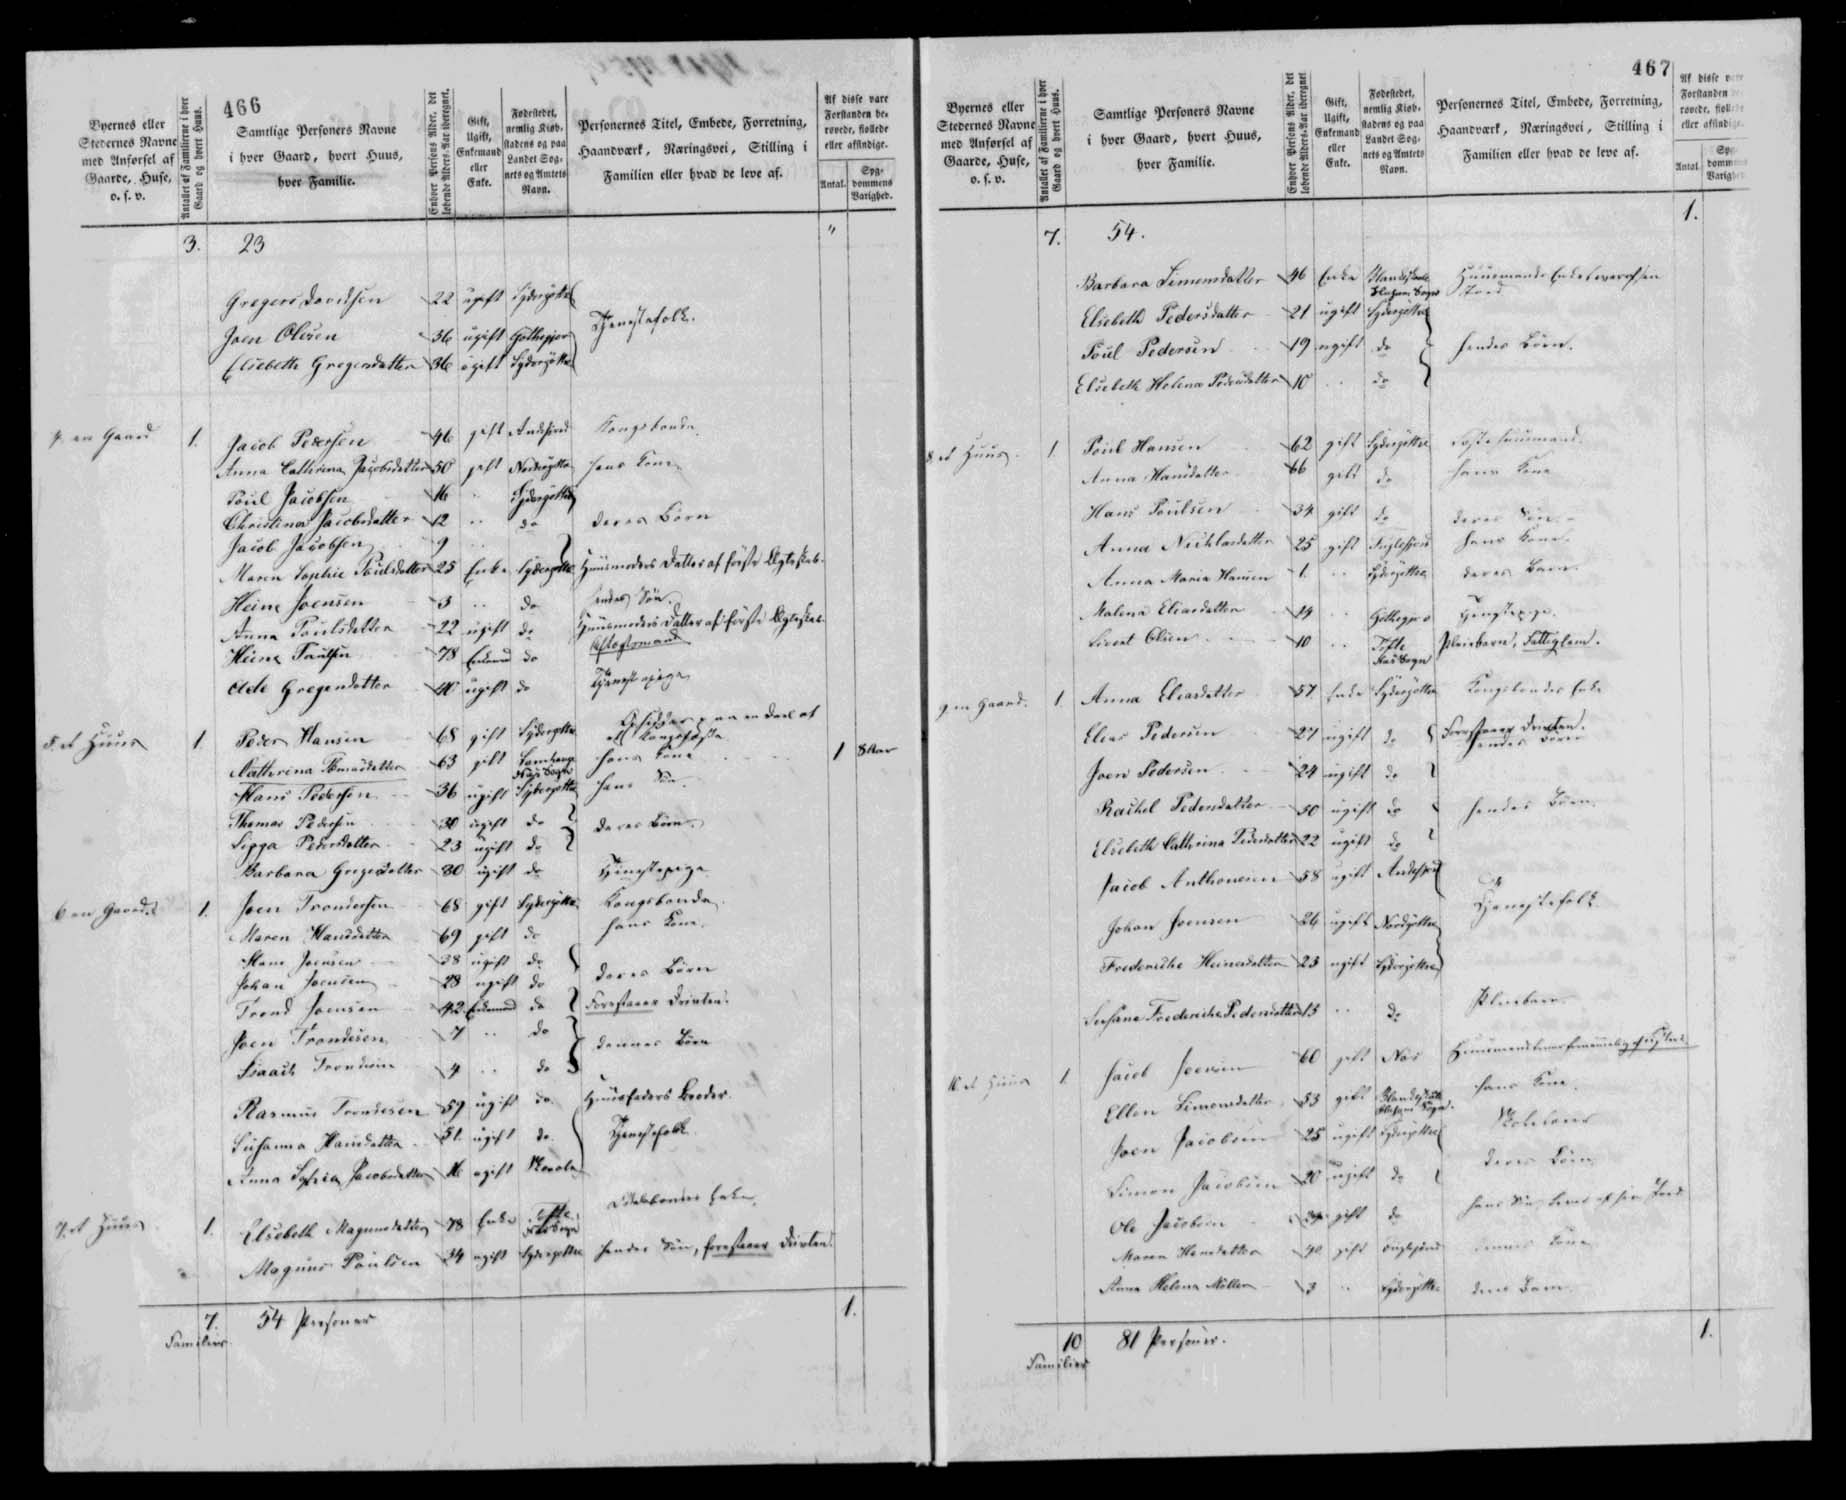 466
Byernes eller Stedernes Navne med Anførsel af Gaarde, Huse, o. s. v.
Antallet af Familierne i hver Gaard og hvert Huus.
Samtlige Personers Navne i hver Gaard, hvert Huus, hver Familie.
Enhver Persons Alder, det løbende Alders-Aar iberegnet.
Gift, Ugift, Enkemand eller Enke.
Fødestedet, nemlig Kiøbstadens og paa Landet Sognets og Amtets Navn.
Personernes Titel, Embede, Forretning, Haandværk, Næringsvei, Stilling i Familien eller hvad de leve af.
Af disse vare Forstanden berøvede, fiollede eller afsindige.
Antal. Sygdommens Varighed.
3. 23 "
Gregers Davidsen 22 ugift Sydergøtte
Joen Olesen 36 ugift Gøthegjov Tjenestefolk.
Elsebeth Gregersdatter 36 ugift Sydergøtte
4. en Gaard 1. Jacob Pedersen 46 gift Andefjord Kongsbonde
Anna Cathrina Jacobsdatter 50 gift Nordregøtte hans Kone
Poul Jacobsen 16 " Sydergøtte
Christina Jacobsdatter 12 " do deres Börn
Jacob Jacobsen 9
Maren Sophie Poulsdatter 25 Enke Sydergøtte Huusmoders Datter af første Ægteskab.
Heine Joensen 3 " do hendes Sön
Anna Poulsdatter 22 ugift do Huusmoders Datter af første Ægteskab.
Heine Poulsen 78 Enkemd do Aftægtsmand
Ade Gregersdatter 40 ugift do Tjenestepige
5. et Huus 1. Peder Hansen 68 gift Sydergøtte
Cathrina Thomasdatter 63 gift hans Kone 1 8 Aar
Hans Pedersen 36 ugift Sydergøtte hans Sön
Thomas Pedersen 30 ugift do
Sigga Pedersdatter 23 ugift do deres Börn.
Barbara Gregersdatter 30 ugift do Tjenestepige
6 en Gaard 1. Joen Trondesen 68 gift Sydergøtte Kongsbonde
Maren Hansdatter 69 gift do hans Kone
Hans Joensen 38 ugift do
Johan Joensen 28 ugift do deres Börn
Trond Joensen 42 Enkemand do Forestaaer Driften.
Joen Trondesen 7 " do
Isaach Trondesen 4 " do dennes Börn
Rasmus Trondesen 59 ugift do Huusfaders Broder.
Susanna Hansdatter 51 ugift do Tjenestefolk
Anna Sophia Jacobsdatter 16 ugift
7. et Huus 1. Elsebeth Magnusdatter 78 Enke Odelsbondes Enke
Magnus Poulsen 34 ugift Sydergøtte hendes Sön, forestaaer Driften.
7. Familier 54 Personer 1.
467
Byernes eller Stedernes Navne med Anførsel af Gaarde, Huse, o. s. v.
Antallet af Familierne i hver Gaard og hvert Huus.
Samtlige Personers Navne i hver Gaard, hvert Huus, hver Familie.
Enhver Persons Alder, det løbende Alders-Aar iberegnet.
Gift, Ugift, Enkemand eller Enke.
Fødestedet, nemlig Kiøbstadens og paa Landet Sognets og Amtets Navn.
Personernes Titel, Embede, Forretning, Haandværk, Næringsvei, Stilling i Familien eller hvad de leve af.
Af disse vare Forstanden berøvede, fiollede eller afsindige.
Antal. Sygdommens Varighed
7. 54. 1.
Barbara Simonsdatter 46 Enke Huusmands Enke lever af sin Jord
Elsebeth Pedersdatter 21 ugift Sydergøtte
Poul Pedersen 19 ugift do hendes Börn.
Elsebeth Helena Pedersdatter 10 " do
8. et Huus 1 Poul Hansen 62 gift Sydergøtte
Anna Hansdatter 66 gift do hans Kone
Hans Poulsen 34 gift do deres Sön
Anna Nichlasdatter 25 gift Fuglefjord hans Kone.
Anna Maria Hansen 1. " Sydergøtte deres Barn.
Malena Eliasdatter 14 " Gøthegjov Tjenstepige.
Sivert Olsen 10 " Pleiebarn, Fattiglem.
9. en Gaard. 1. Anna Eliasdatter 57 Enke Sydergøtte Kongsbondes Enke
Elias Pedersen 27 ugift do Forestaaer Driften. hendes Börn
Joen Pedersen 24 ugift do
Rachel Pedersdatter 30 ugift do hendes Börn
Elsebeth Cathrina Pedersdatter 22 ugift do
Jacob Anthonesen 58 ugift Andefjord
Johan Joensen 26 ugift Nordgøtte Tjenestefolk
Frederiche Heinesdatter 23 ugift Sydergøtte
Susane Frederiche Pedersdatter 13 " do Pleiebarn
10. et Huus 1. Jacob Joensen 60 gift Næs
Ellen Simonsdatter 53 gift hans Kone.
Joen Jacobsen 25 ugift Sydergøtte
Simon Jacobsen 20 ugift do deres Börn
Ole Jacobsen gift do hans Sön, lever af sin Jord
Maren Hansdatter 40 gift Fuglefjord dennes Kone
Anna Helena Möller 3 " Sydergøtte deres Barn.
10 Familier 81 Personer. 1.